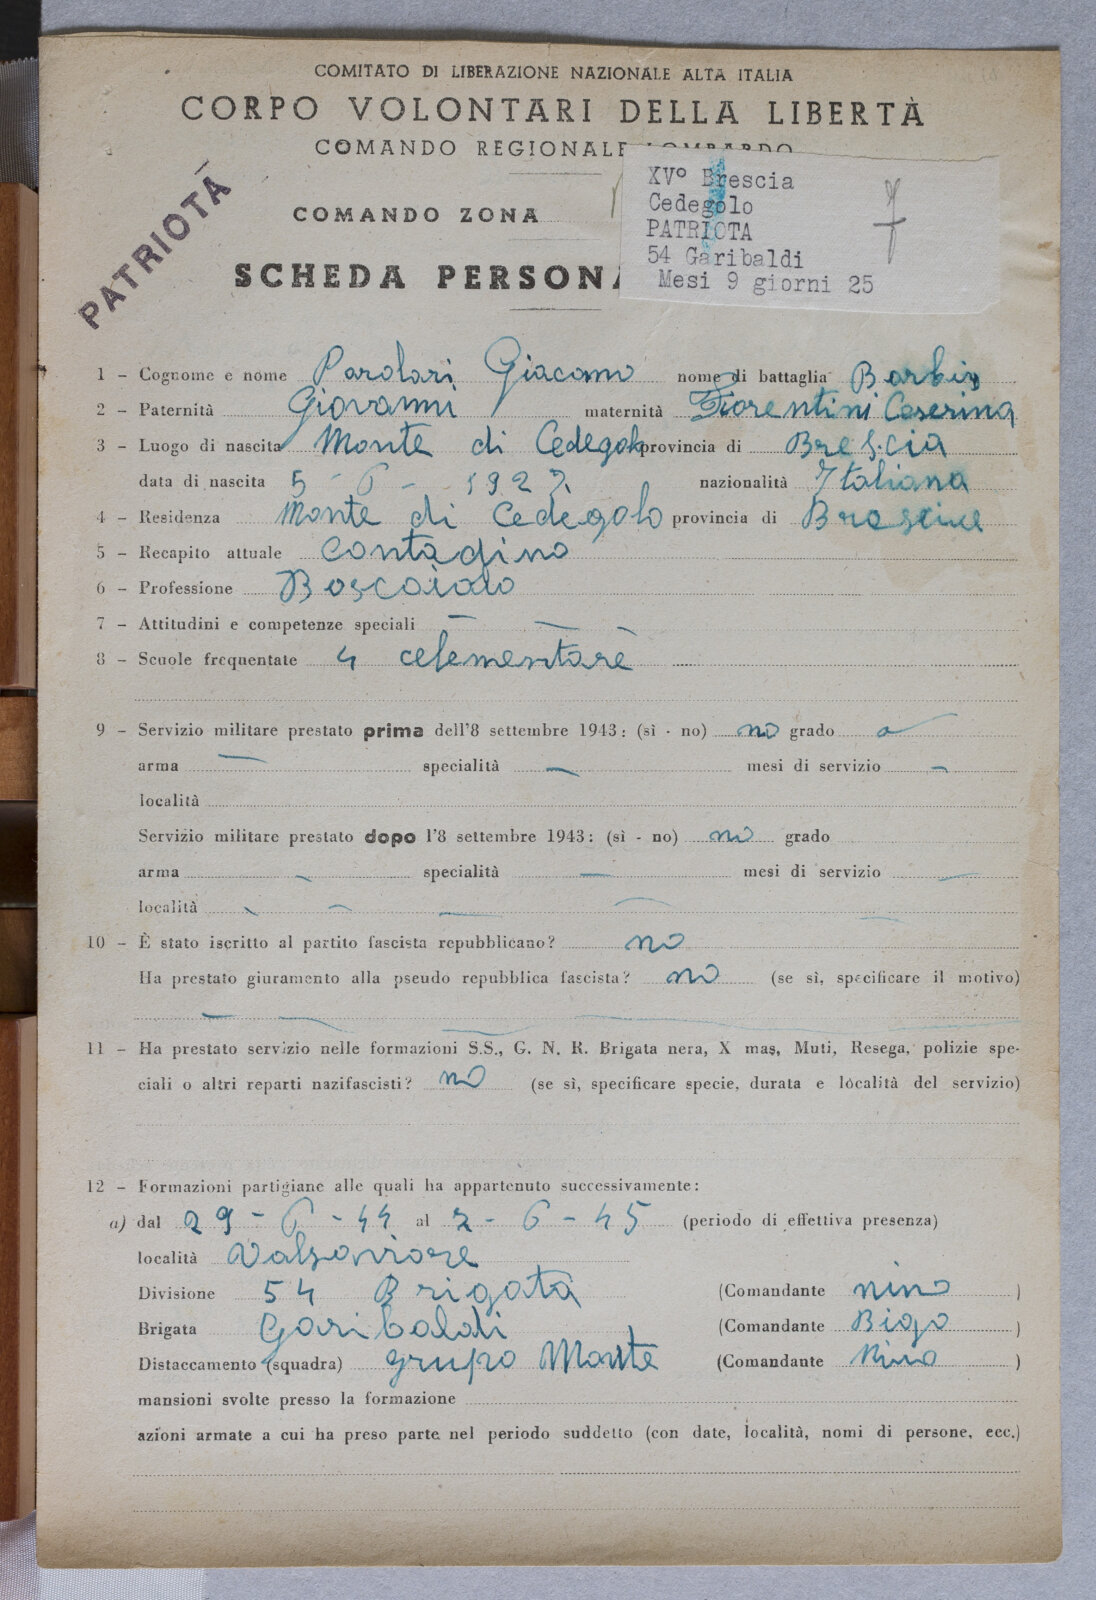 COMITATO DI LIBERAZIONE NAZIONALE ALTA ITALIA
CORPO VOLONTARI DELLA LIBERTÀ
COMANDO REGIONALE LOMBARDO
PATRIOTA
COMANDO ZONA
SCHEDA PERSONA
XVº Brescia
Cedegolo
PATRIOTA
54 Garibaldi
Mesi 9 giorni 25
1 - Cognome e nome Parolari Giacomo nome di battaglia
2 - Paternità Giovanni maternità Fiorentini Caserina
3 - Luogo di nascita Monte di Cedegolo provincia di Brescia
data di nascita 5 - 6 - 1927 nazionalità Italiana
4 - Residenza Monte di Cedegolo provincia di
5 - Recapito attuale contadino
6 - Professione Boscaiolo
7 - Attitudini e competenze speciali —
8 - Scuole frequentate 4 celementare
9 - Servizio militare prestato prima dell'8 settembre 1943: (sì - no) no grado
arma — specialità — mesi di servizio —
località
Servizio militare prestato dopo l'8 settembre 1943: (sì - no) no grado
arma — specialità — mesi di servizio —
località
10 - È stato iscritto al partito fascista repubblicano? no
Ha prestato giuramento alla pseudo repubblica fascista? no (se sì, specificare il motivo)
11 - Ha prestato servizio nelle formazioni S.S., G. N. R. Brigata nera, X mas, Muti, Resega, polizie spe-
ciali o altri reparti nazifascisti? no (se sì, specificare specie, durata e località del servizio)
12 - Formazioni partigiane alle quali ha appartenuto successivamente:
a) dal 29 - 6 - 44 al 2 - 6 - 45 (periodo di effettiva presenza)
località Valsaviore
Divisione 54 Brigata (Comandante nino )
Brigata Garibaldi (Comandante Bigo )
Distaccamento (squadra) grupo Monte (Comandante Nino )
mansioni svolte presso la formazione
azioni armate a cui ha preso parte nel periodo suddetto (con date, località, nomi di persone, ecc.)